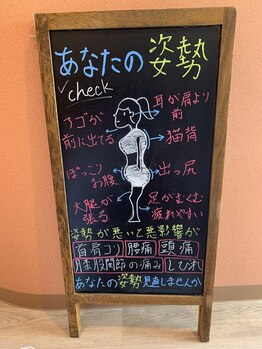 あなたの姿勢
check
アゴが
前に出てる
耳が肩より
前
猫背
ぽっこり
お腹
出っ尻
大腿が
張る
足がむくむ
疲れやすい
姿勢が悪いと悪影響が
首肩コリ 腰痛 頭痛
膝股関節の痛み しびれ
あなたの姿勢見直しませんか